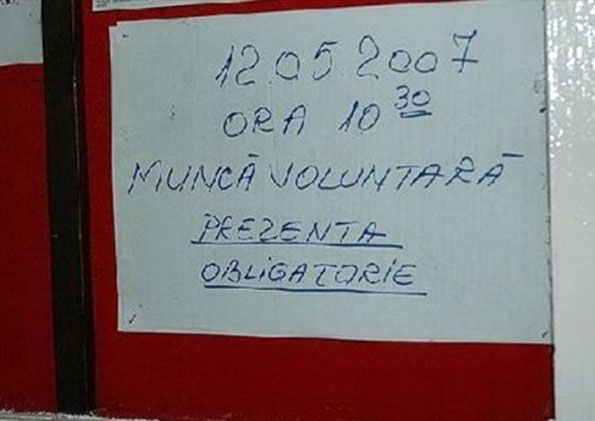 12.05.2007
ORA 10 30
MUNCĂ VOLUNTARĂ
PREZENTA
OBLIGATORIE